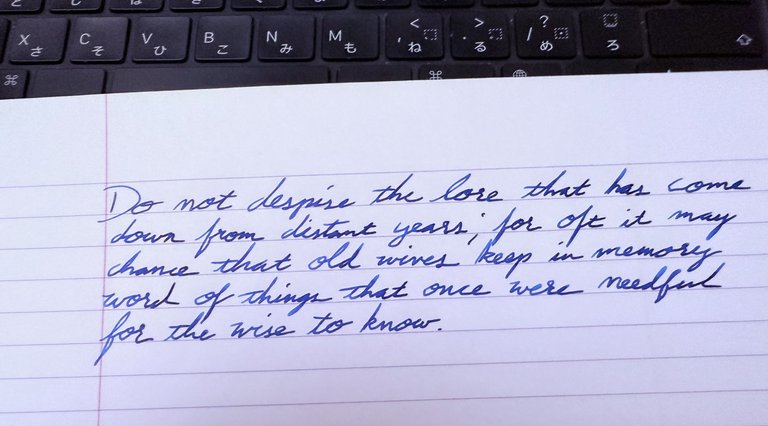 X さ C そ V ひ B こ N み M も < , ね > . る ? / め ろ
⌘ ⌘
Do not despise the lore that has come
down from distant years; for oft it may
chance that old wives keep in memory
word of things that once were needful
for the wise to know.